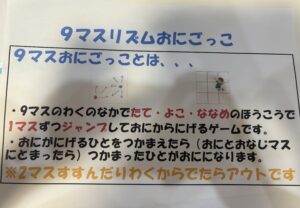 9マスリズムおにごっこ
9マスおにごっことは、、、
・9マスのわくのなかでたて・よこ・ななめのほうこうで
1マスずつジャンプしておにからにげるゲームです。
・おにがにげるひとをつかまえたら（おにとおなじマス
にとまったら）つかまったひとがおにになります。
※2マスすすんだりわくからでたらアウトです